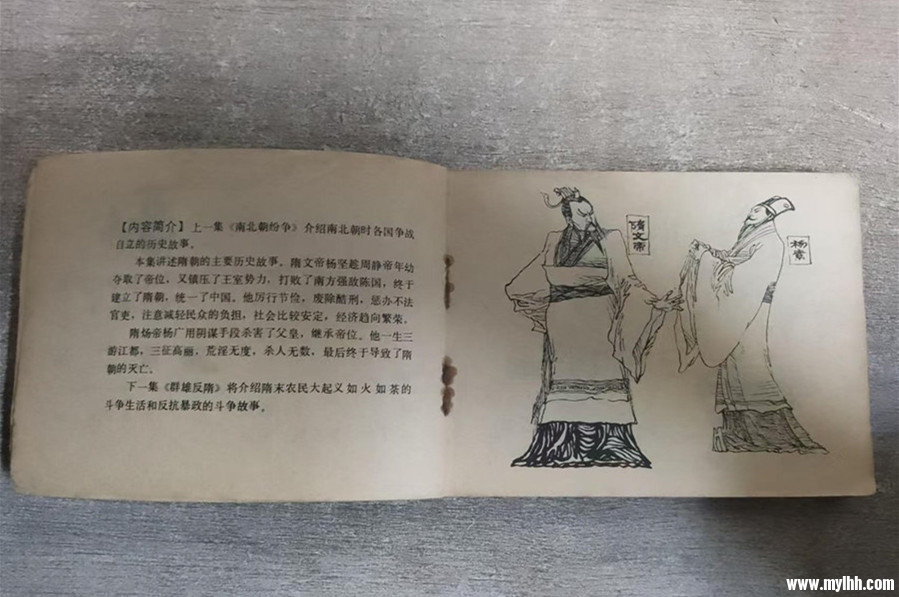 【内容简介】上一集《南北朝纷争》介绍南北朝时各国争战
自立的历史故事。
本集讲述隋朝的主要历史故事。隋文帝杨坚趁周静帝年幼
夺取了帝位，又镇压了王室势力，打败了南方强敌陈国，终于
建立了隋朝，统一了中国。他厉行节俭，废除酷刑，惩办不法
官吏，注意减轻民众的负担，社会比较安定，经济趋向繁荣。
隋炀帝杨广用阴谋手段杀害了父皇，继承帝位。他一生三
游江都，三征高丽，荒淫无度，杀人无数，最后终于导致了隋
朝的灭亡。
下一集《群雄反隋》将介绍隋末农民大起义如火如荼的
斗争生活和反抗暴政的斗争故事。
隋文帝
杨素
www.mylhh.com